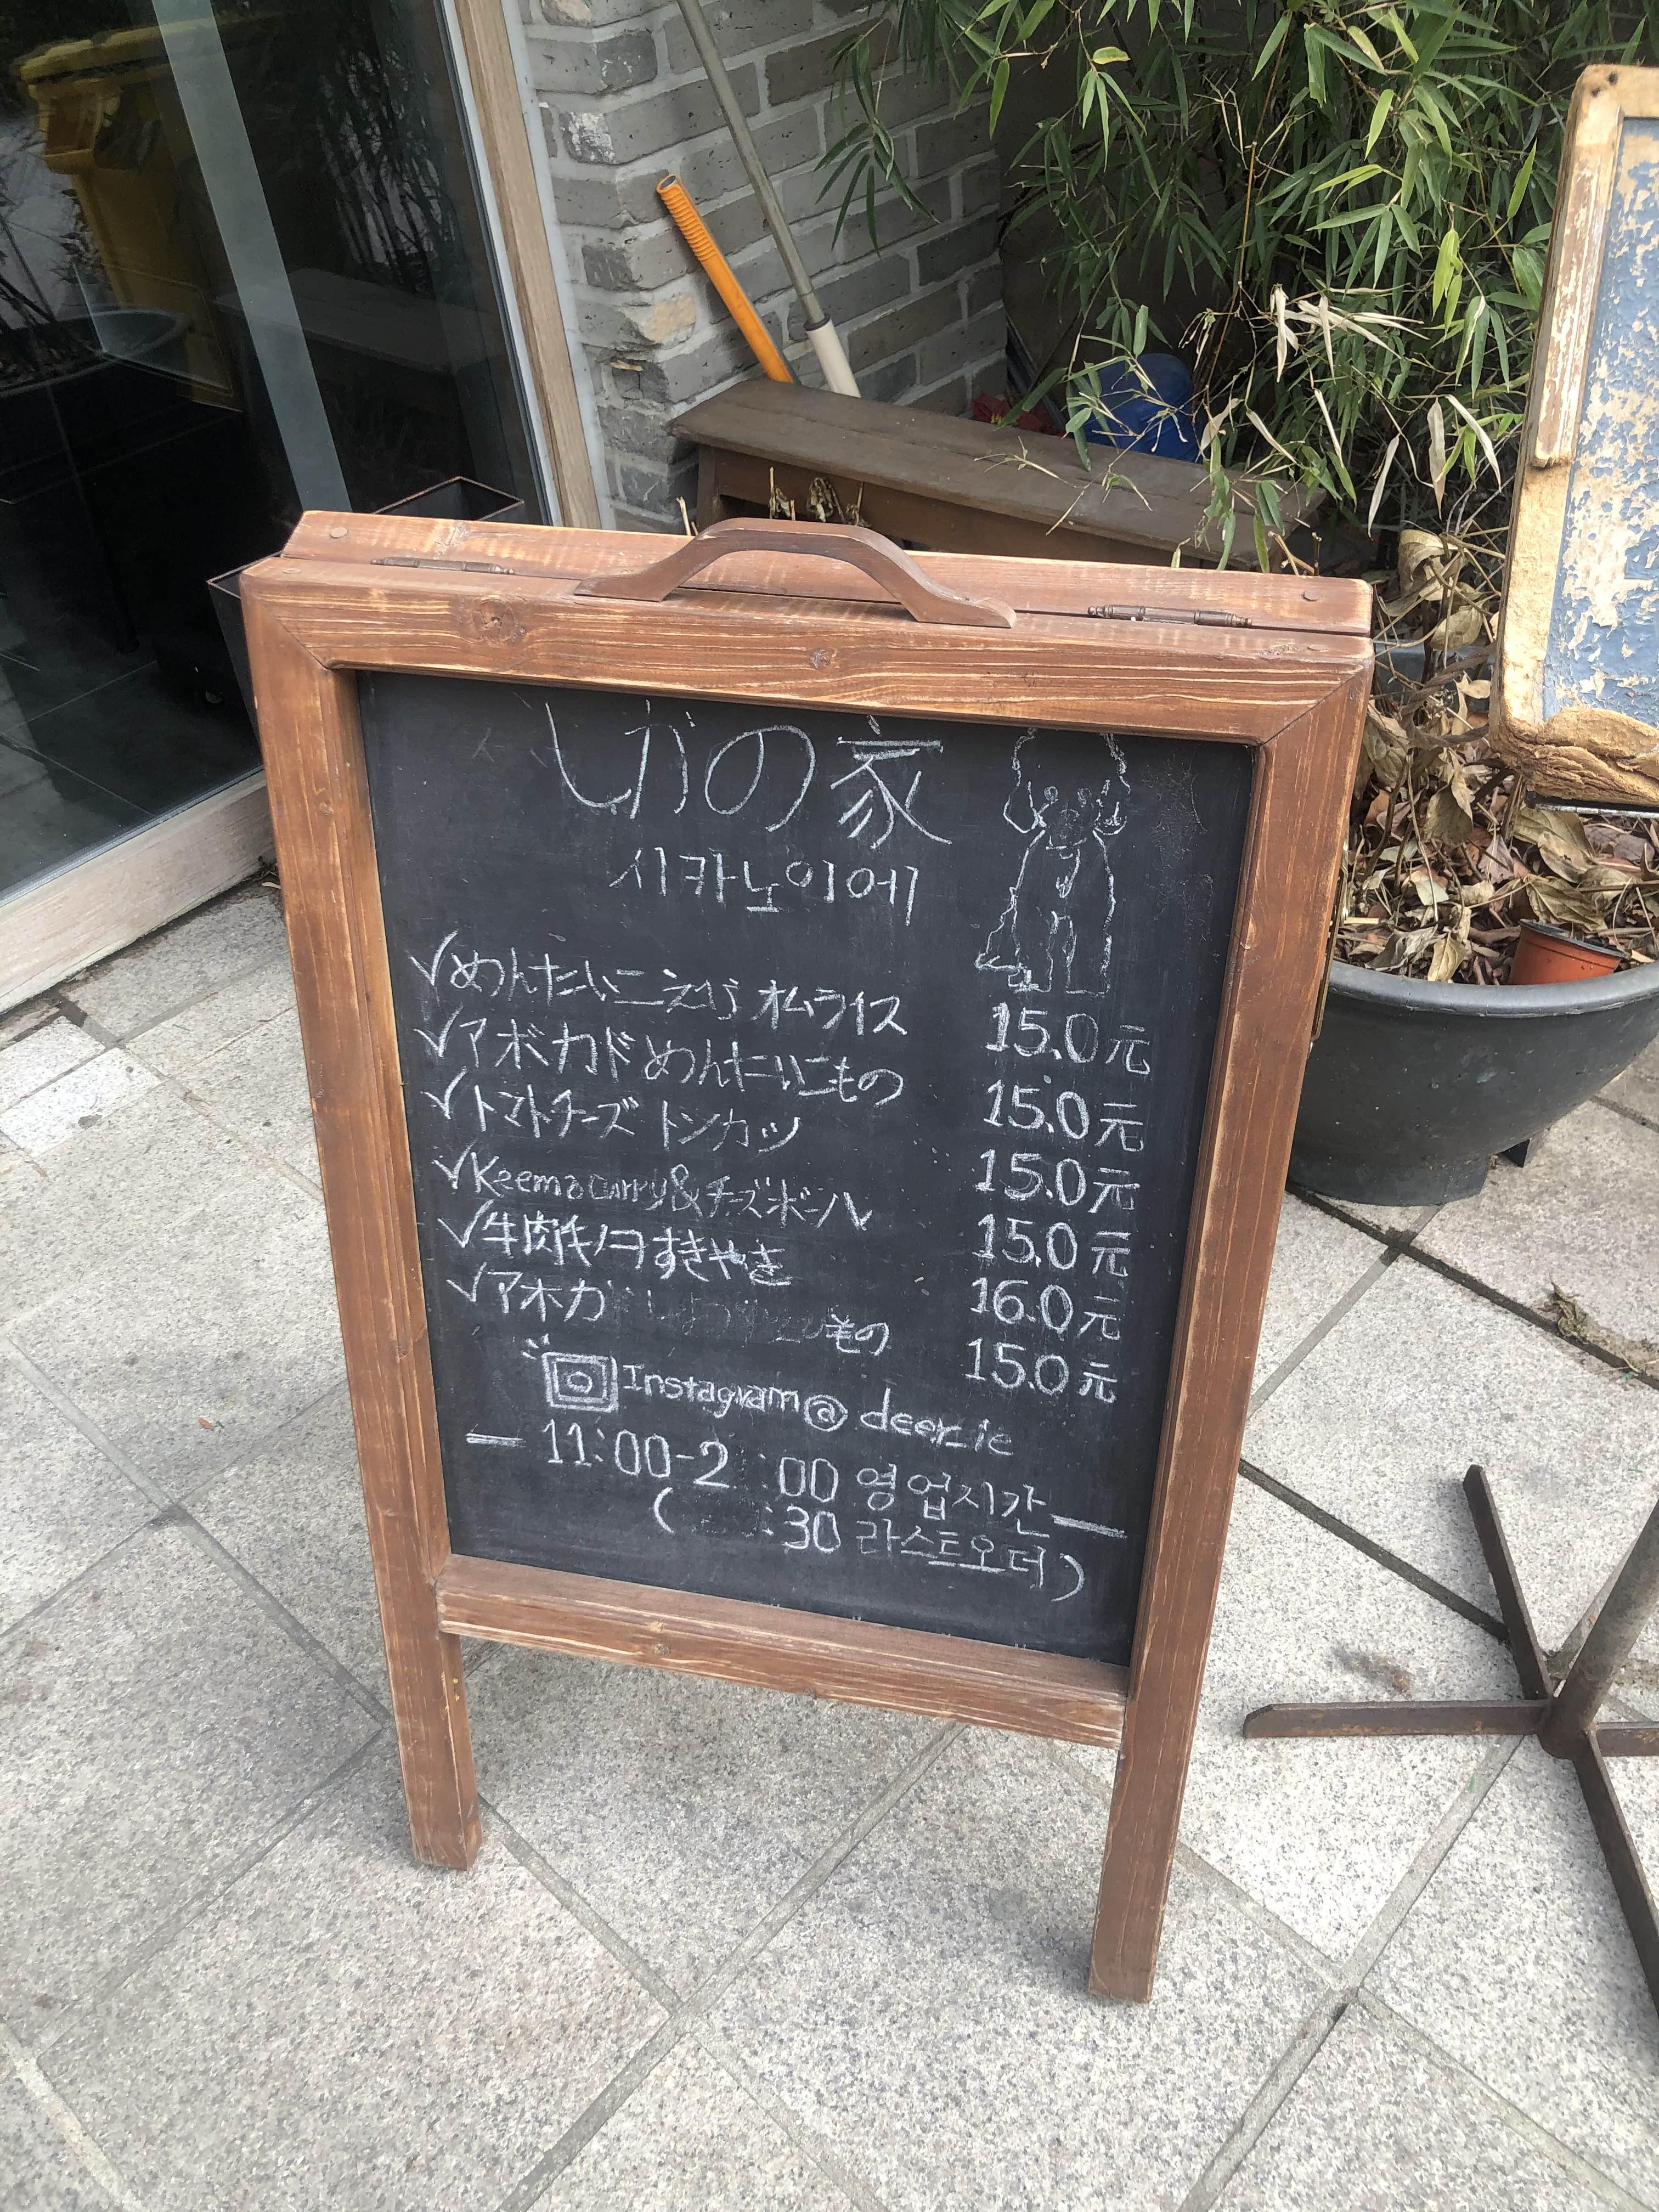 しかの家
시카노이에
✓めんたいこえび オムライス 15.0元
✓アボカドめんたいこもの 15.0元
✓トマトチーズ トンカツ 15.0元
✓Keema curry&チーズボール 15.0元
✓牛肉キノコすきやき 16.0元
✓アボカ もの 15.0元
Instagram@ deer_ie
11:00-2 :00 영업시간
( :30 라스트오더)